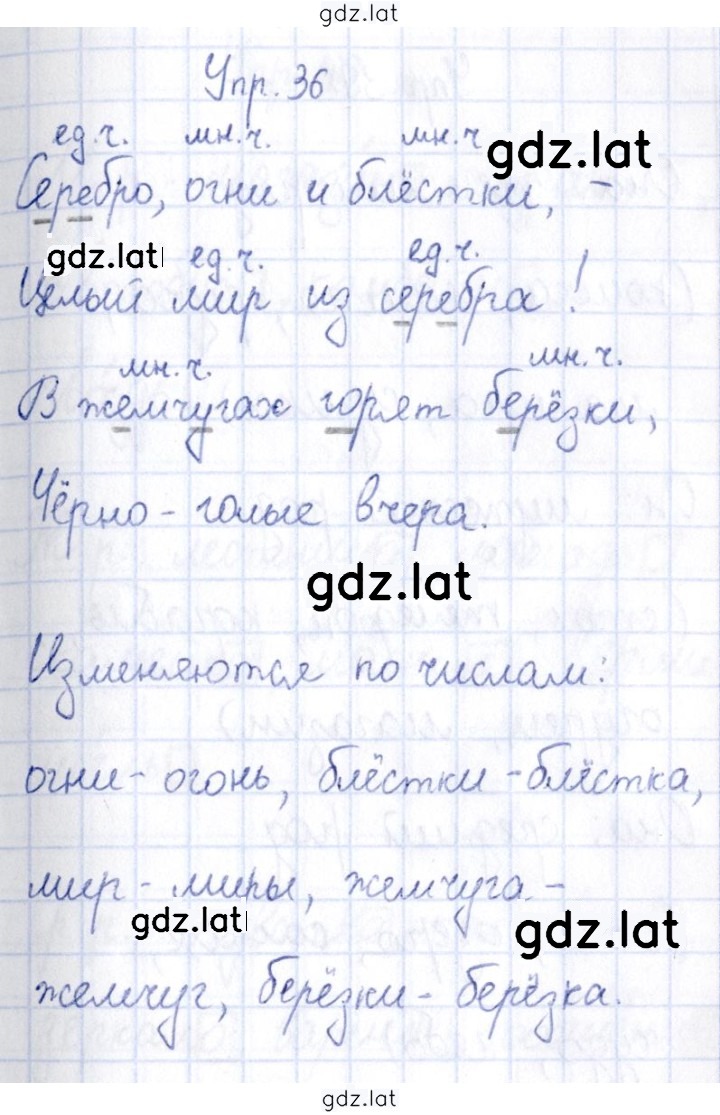 gdz.lat
Упр. 36
ед.ч. мн.ч. мн.ч
gdz.lat
Серебро, огни и блёстки, –
gdz.lat ед.ч. ед.ч.
Целый мир из серебра!
мн.ч. мн.ч.
В жемчугах горят берёзки,
Чёрно-голые вчера.
gdz.lat
Изменяются по числам:
огни - огонь, блёстки - блёстка,
мир - миры, жемчуга -
gdz.lat gdz.lat
жемчуг, берёзки - берёзка.
gdz.lat